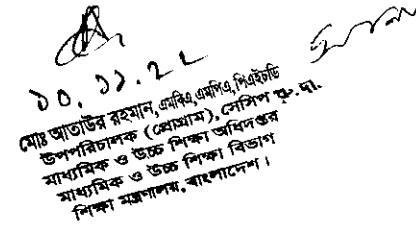 ১০.১১.২২
মোঃ আতাউর রহমান, এমবিএ, এমপিএ, পিএইচডি
উপপরিচালক (প্রোগ্রাম), সেসিপ রু.দা.
মাধ্যমিক ও উচ্চ শিক্ষা অধিদপ্তর
মাধ্যমিক ও উচ্চ শিক্ষা বিভাগ
শিক্ষা মন্ত্রণালয়, বাংলাদেশ।